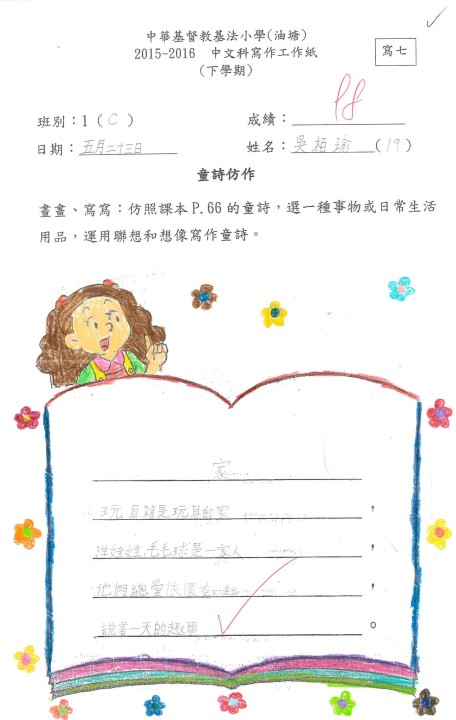 中華基督教基法小學(油塘)
2015-2016 中文科寫作工作紙
(下學期)
寫七
班別：1 ( C )
成績：
日期：五月二十三日
姓名：吳栢瑜 (19)
童詩仿作
畫畫、寫寫：仿照課本 P.66 的童詩，選一種事物或日常生活
用品，運用聯想和想像寫作童詩。
家
玩具箱是玩具的家，
洋娃娃毛毛球是一家人，
他們總愛依偎在一起，
說着一天的趣事。